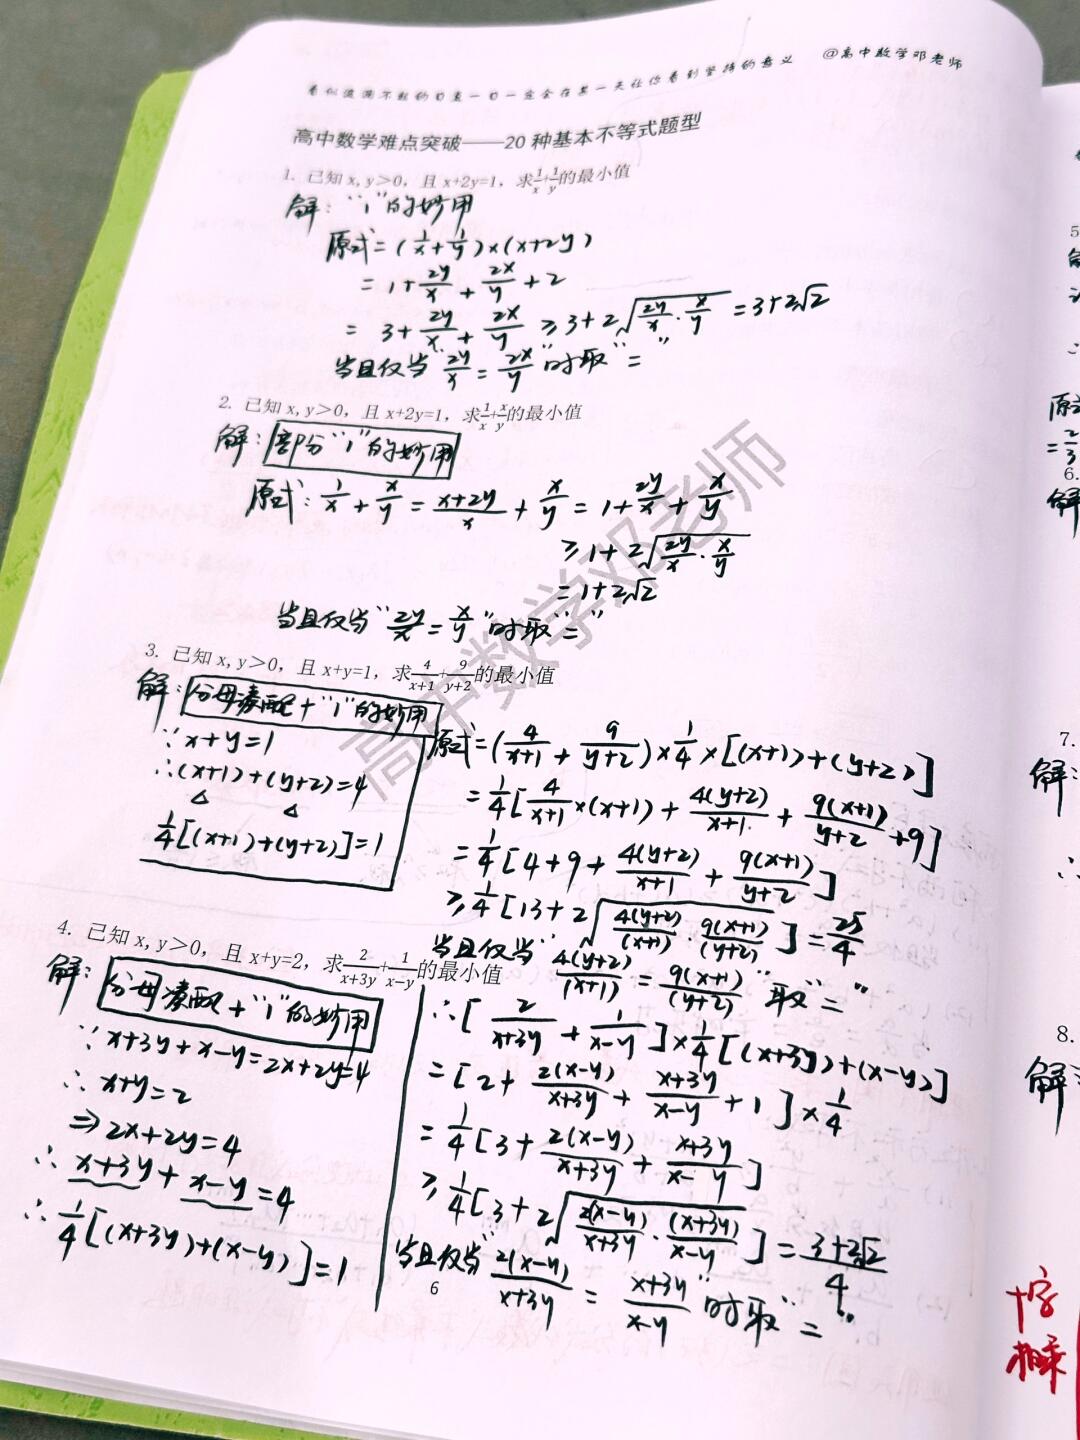 看似波澜不惊的日复一日一定会在某一天让你看到坚持的意义 @高中数学邓老师
高中数学难点突破——20种基本不等式题型
1. 已知x,y>0，且x+2y=1，求1/x+1/y的最小值
解："1"的妙用
原式=(1/x+1/y)×(x+2y)
=1+2y/x+2x/y+2
=3+2y/x+2x/y≥3+2√(2y/x·x/y)=3+2√2
当且仅当"2y/x=2x/y"时取"="
2. 已知x,y>0，且x+2y=1，求1/x+x/y的最小值
解：部分"1"的妙用
原式：1/x+x/y=(x+2y)/x+x/y=1+2y/x+x/y
≥1+2√(2y/x·x/y)
=1+2√2
当且仅当"2y/x=x/y"时取"="
3. 已知x,y>0，且x+y=1，求4/(x+1)+9/(y+2)的最小值
解：分母凑配+"1"的妙用
∵x+y=1
∴(x+1)+(y+2)=4
1/4[(x+1)+(y+2)]=1
原式=(4/(x+1)+9/(y+2))×1/4×[(x+1)+(y+2)]
=1/4[4/(x+1)×(x+1)+4(y+2)/(x+1)+9(x+1)/(y+2)+9]
=1/4[4+9+4(y+2)/(x+1)+9(x+1)/(y+2)]
≥1/4[13+2√(4(y+2)/(x+1)·9(x+1)/(y+2))]=25/4
当且仅当"4(y+2)/(x+1)=9(x+1)/(y+2)"取"="
4. 已知x,y>0，且x+y=2，求2/(x+3y)+1/(x-y)的最小值
解：分母凑配+"1"的妙用
∵x+3y+x-y=2x+2y=4
∴x+y=2
⇒2x+2y=4
∴x+3y+x-y=4
∴1/4[(x+3y)+(x-y)]=1
∴[2/(x+3y)+1/(x-y)]×1/4[(x+3y)+(x-y)]
=[2+2(x-y)/(x+3y)+(x+3y)/(x-y)+1]×1/4
=1/4[3+2(x-y)/(x+3y)+(x+3y)/(x-y)]
≥1/4[3+2√(2(x-y)/(x+3y)·(x+3y)/(x-y))]=(3+2√2)/4
当且仅当"2(x-y)/(x+3y)=(x+3y)/(x-y)"时取"="
6
高中数学邓老师
5
解
原式
=2/3
6.
解
7.
解：
∴
8.
解：
十字
相乘